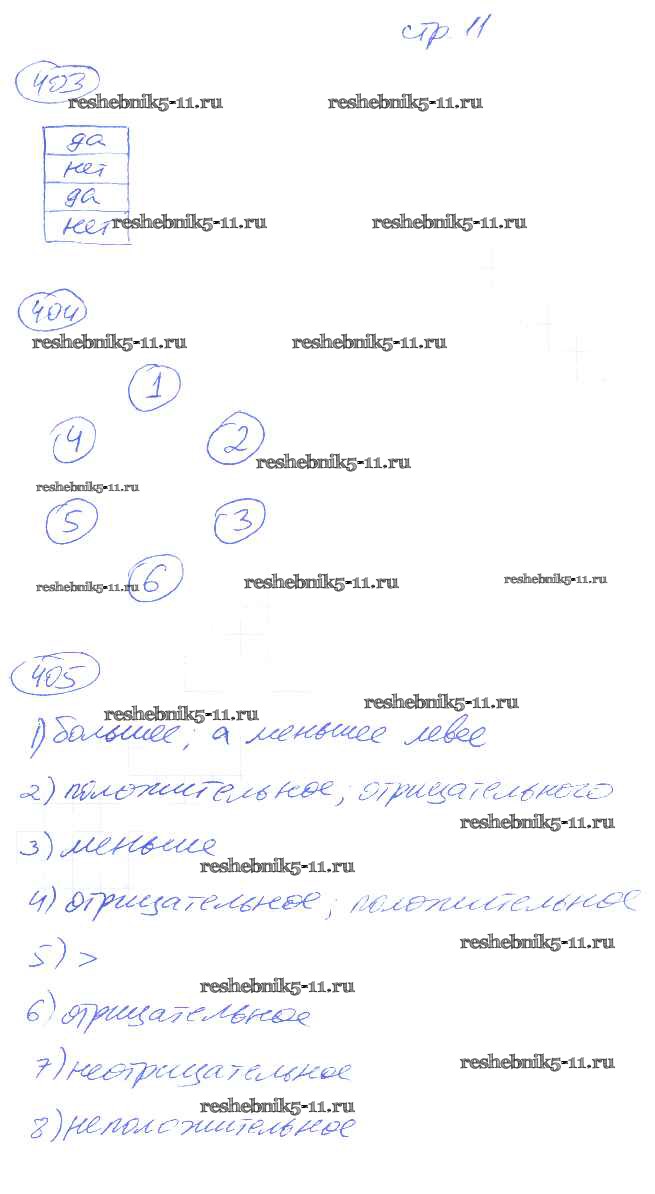 стр 11
403
reshebnik5-11.ru reshebnik5-11.ru
да
нет
да
нет
reshebnik5-11.ru reshebnik5-11.ru
404
reshebnik5-11.ru reshebnik5-11.ru
1
4 2
reshebnik5-11.ru
reshebnik5-11.ru
5 3
6
reshebnik5-11.ru reshebnik5-11.ru reshebnik5-11.ru
405
reshebnik5-11.ru reshebnik5-11.ru
1) большее; а меньшее левее
2) положительное; отрицательного
reshebnik5-11.ru
3) меньше
reshebnik5-11.ru
4) отрицательное; положительное
reshebnik5-11.ru
5) >
reshebnik5-11.ru
6) отрицательное
reshebnik5-11.ru
7) неотрицательное
reshebnik5-11.ru
8) неположительное